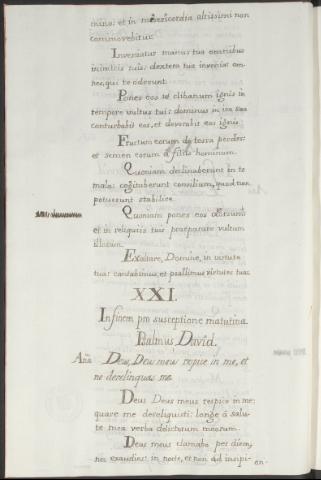 mino: et in misericordia altissimi non
commovebitur.
Inveniatur manus tua omnibus
inimicis tuis: dextera tua inveniat om-
nes, qui te oderunt.
Pones eos ut clibanum ignis in
tempore vultus tui: dominus in ira sua
conturbabit eos, et devorabit eos ignis.
Fructum eorum de terra perdes:
et semen eorum à filiis hominum.
Quoniam declinaverunt in te
mala: cogitaverunt consilium, quod non
potuerunt stabilire.
Quoniam pones eos dorsum:
et in reliquiis tuis praeparabis vultum
illorum.
Exaltare, Domine, in virtute
tua: cantabimus, et psallimus virtutes tuas.
XXI.
In finem pro susceptione matutina.
Psalmus David.
Aña Deus, Deus meus respice in me, et
ne derelinquas me.
Deus Deus meus respice in me:
quare me dereliquisti: longè à salu-
te mea verba delictorum meorum.
Deus meus clamabo per diem,
nec exaudies: in nocte, et non ad insipi-
en-